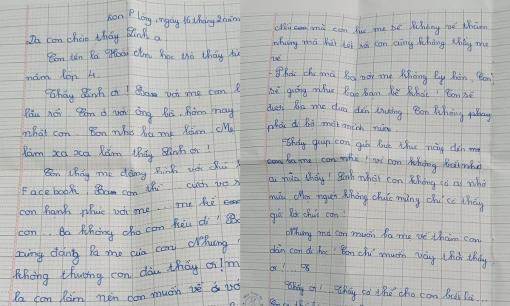 Kon P Lông, ngày 16 tháng 2 năm
Dạ con chào thầy Sinh ạ
Con tên là Hoài Ân học trò thầy từ
năm lớp 4.
Thầy Sinh ơi! Ba với mẹ con
lâu rồi. Con ở với ông bà. hôm nay
nhật con. Con nhớ ba mẹ lắm. Mẹ
làm xa xa lắm thầy Sinh ơi!
Con thấy mẹ đăng hình với chú
Facebook. Ba con thì cưới vợ
con hạnh phúc với mẹ... mẹ kế
con.. Ba không cho con kêu dì!
xứng đáng là mẹ của con. Nhưng
không thương con đâu thầy ơi!
la con lắm nên con muốn về ở
mà con bức mẹ sẽ không về thăm
nhưng mà hết tết rồi con cũng không thấy mẹ
về.
Phải chi mà ba với mẹ không ly hôn, Con
sẽ giống như bao bạn bè khác! Con sẽ
được ba mẹ đưa đến trường. Con không phải
phải đi bộ một mình nữa.
Thầy giúp con gửi bức thư này đến mẹ
ba mẹ con nhé! Vì con không biết nhờ
ai nữa thầy! Sinh nhật con không có ai nhớ
nữa. Mọi người không chúc mừng chỉ có thầy
gửi lời chúc con!
Nhưng mà con muốn ba mẹ về thăm con
dẫn con đi học! Con chỉ muốn vậy thôi thầy
ơi!
Thầy ơi! Thầy có thể cho con biết là